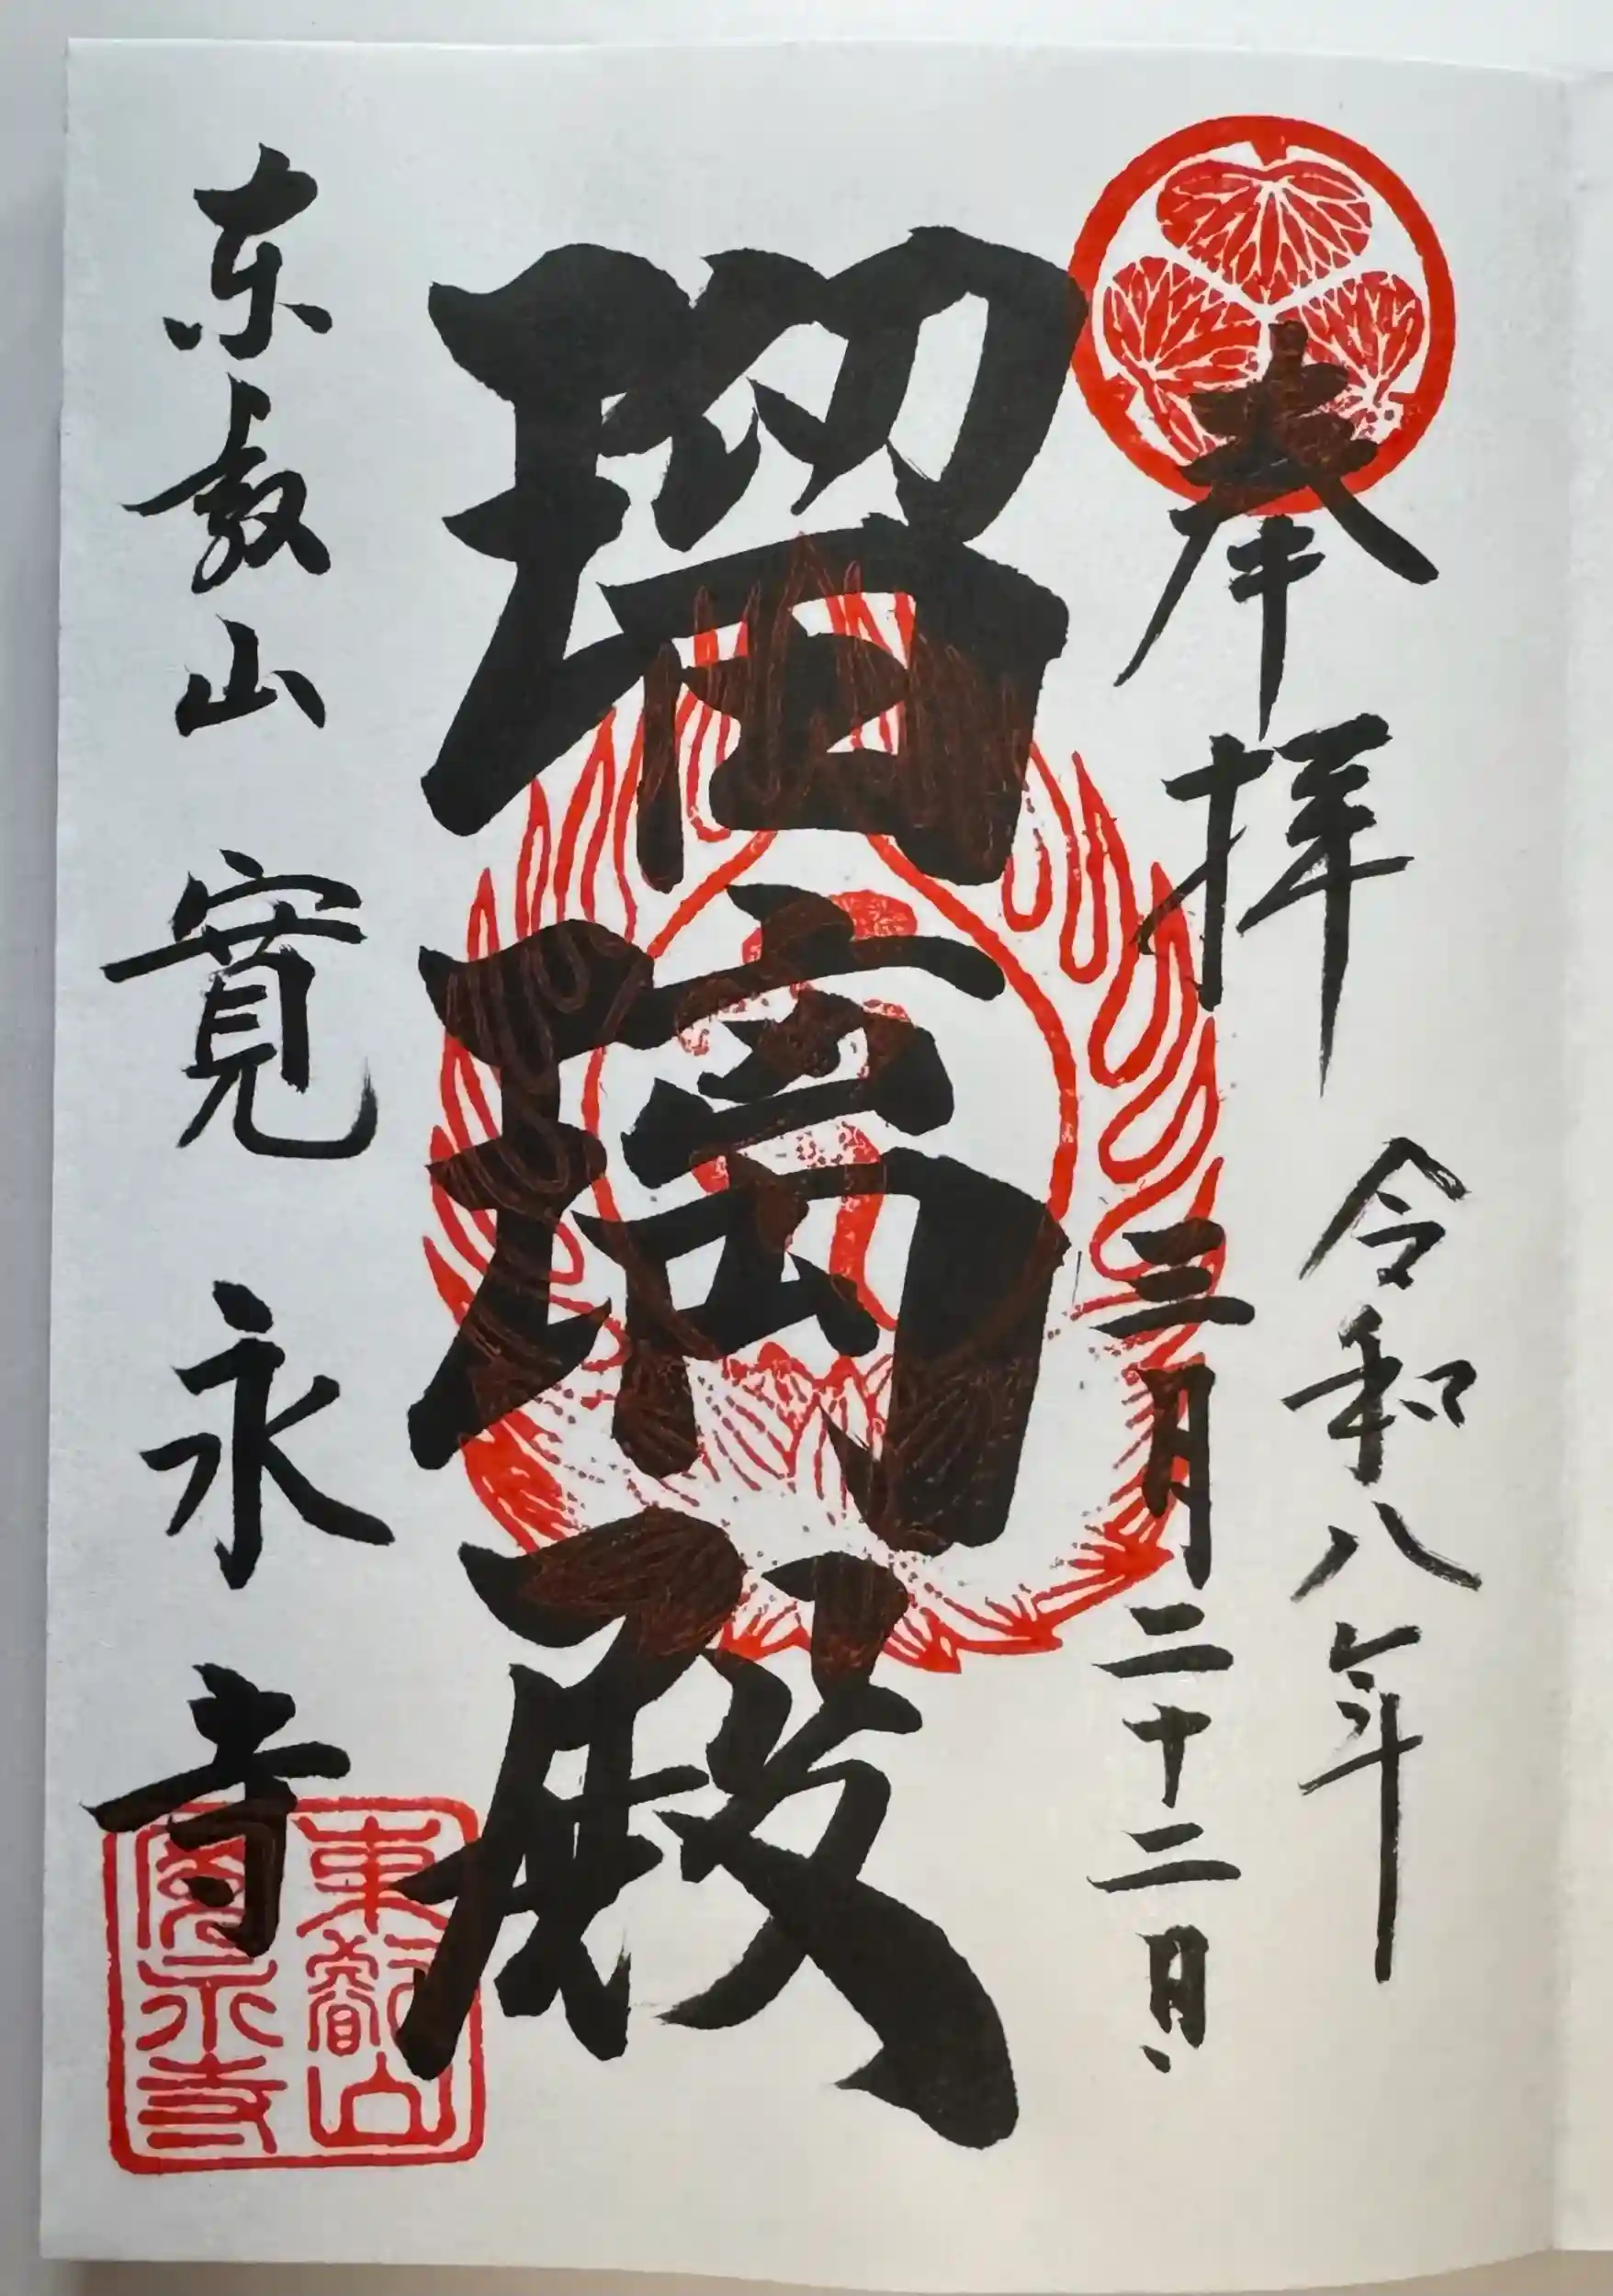 奉拝
令和八年
三月二十二日
瑠璃殿
東叡山寛永寺
東叡山
寛永寺